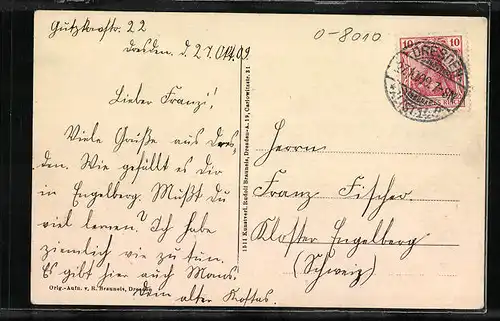 Gutzkowstr. 22
Dresden. d. 27. Okt. 09.
0-8010
Lieber Franzi!
Viele Grüße aus Dres-
den. Wie gefällt es dir
in Engelberg. Mußt du
viel lernen? Ich habe
ziemlich vie zu tun.
Es gibt hier auch
Dein alter
Orig.-Aufn. v. R. Brauneis, Dresden
1511 Kunstverl. Rudolf Brauneis, Dresden-A. 19, Carlowitzstr. 31
10 10
DRESDEN
Herrn
Franz Fischer.
Kloster Engelberg
(Schweiz)